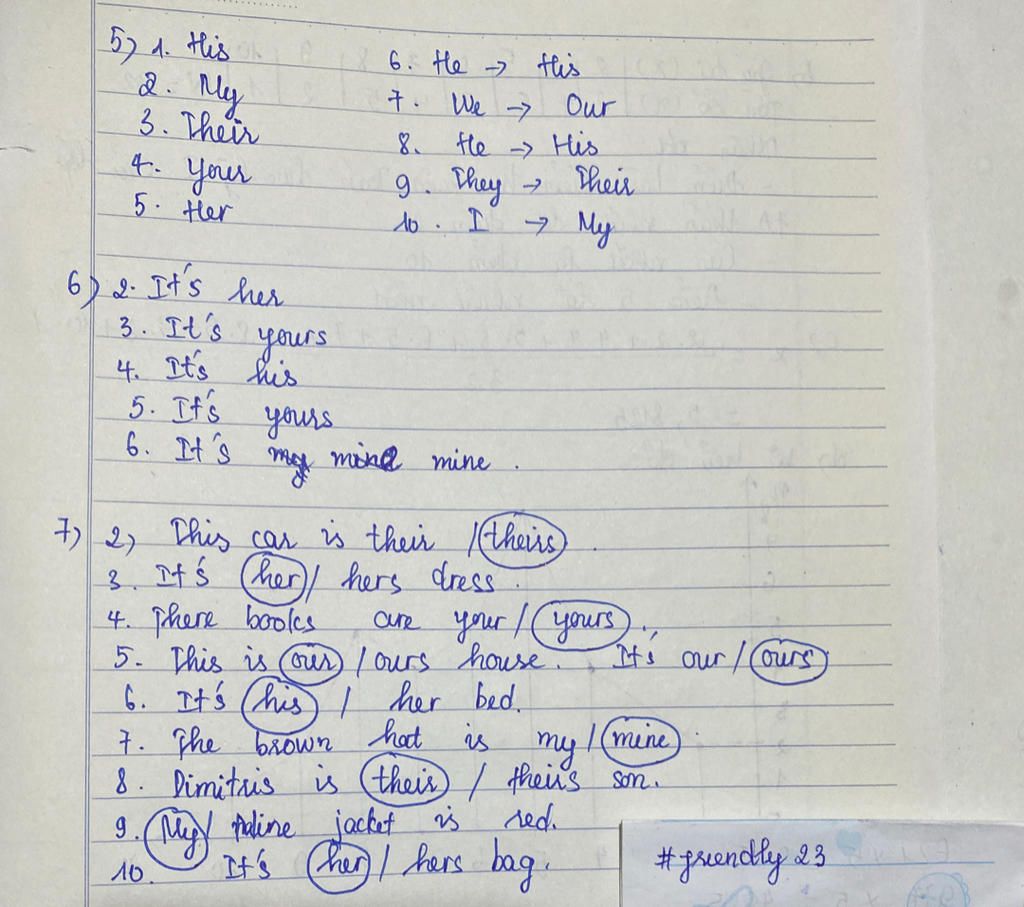 5) 1. His
2. My
3. Their
4. Your
5. Her
6. He → His
7. We → Our
8. He → His
9. They → Their
10. I → My
6) 2. It's her
3. It's yours
4. It's his
5. It's yours
6. It's mine .
7) 2) This car is their / theirs .
3. It's her / hers dress .
4. There books are your / yours .
5. This is our / ours house. It's our / ours
6. It's his / her bed.
7. The brown hat is my / mine .
8. Dimitris is their / theirs son.
9. My / jacket is red.
10. It's her / hers bag.
#friendly 23